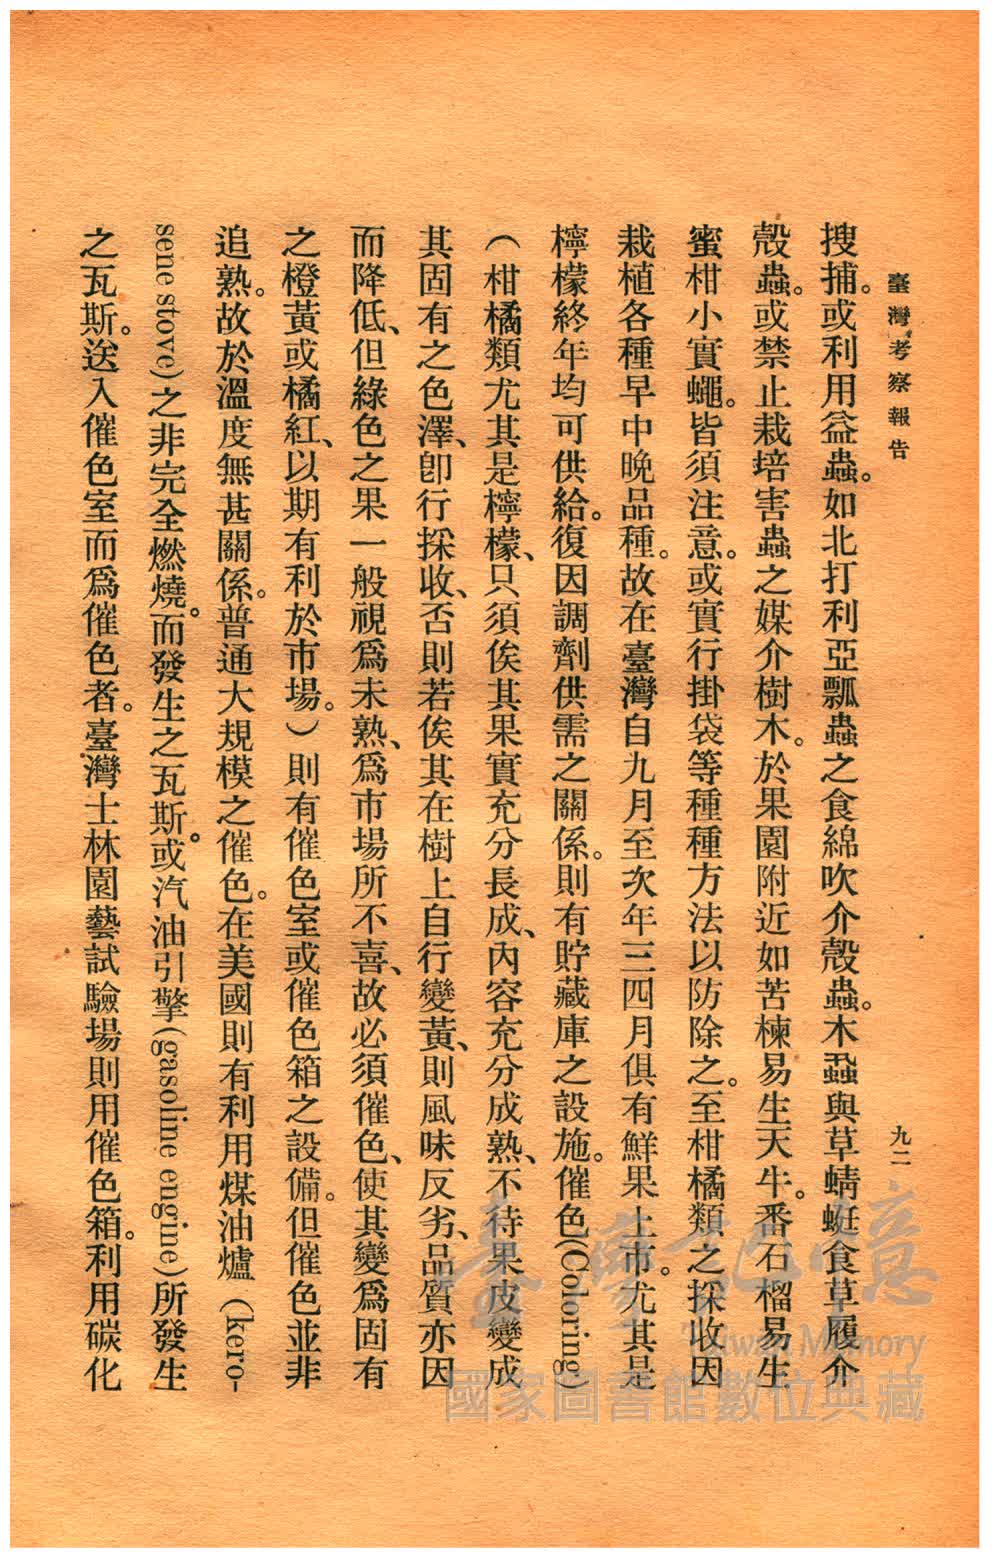 臺灣考察報告
九二
搜捕。或利用益蟲。如北打利亞瓢蟲之食綿吹介殼蟲。木蝨與草蜻蜓食草履介
殼蟲。或禁止栽培害蟲之媒介樹木。於果園附近如苦楝易生天牛。番石榴易生
蜜柑小實蠅。皆須注意。或實行掛袋等種種方法以防除之。至柑橘類之採收因
栽植各種早中晚品種。故在臺灣自九月至次年三四月俱有鮮果上市。尤其是
檸檬終年均可供給。復因調劑供需之關係。則有貯藏庫之設施。催色(Coloring)
（柑橘類尤其是檸檬、只須俟其果實充分長成、內容充分成熟、不待果皮變成
其固有之色澤、卽行採收、否則若俟其在樹上自行變黃、則風味反劣、品質亦因
而降低、但綠色之果一般視爲未熟、爲市場所不喜、故必須催色、使其變爲固有
之橙黃或橘紅、以期有利於市場。）則有催色室或催色箱之設備。但催色並非
追熟。故於溫度無甚關係。普通大規模之催色。在美國則有利用煤油爐（kero-
sene stove)之非完全燃燒。而發生之瓦斯。或汽油引擎(gasoline engine)所發生
之瓦斯。送入催色室而爲催色者。臺灣士林園藝試驗場則用催色箱。利用碳化
臺灣記憶
Taiwan Memory
國家圖書館數位典藏